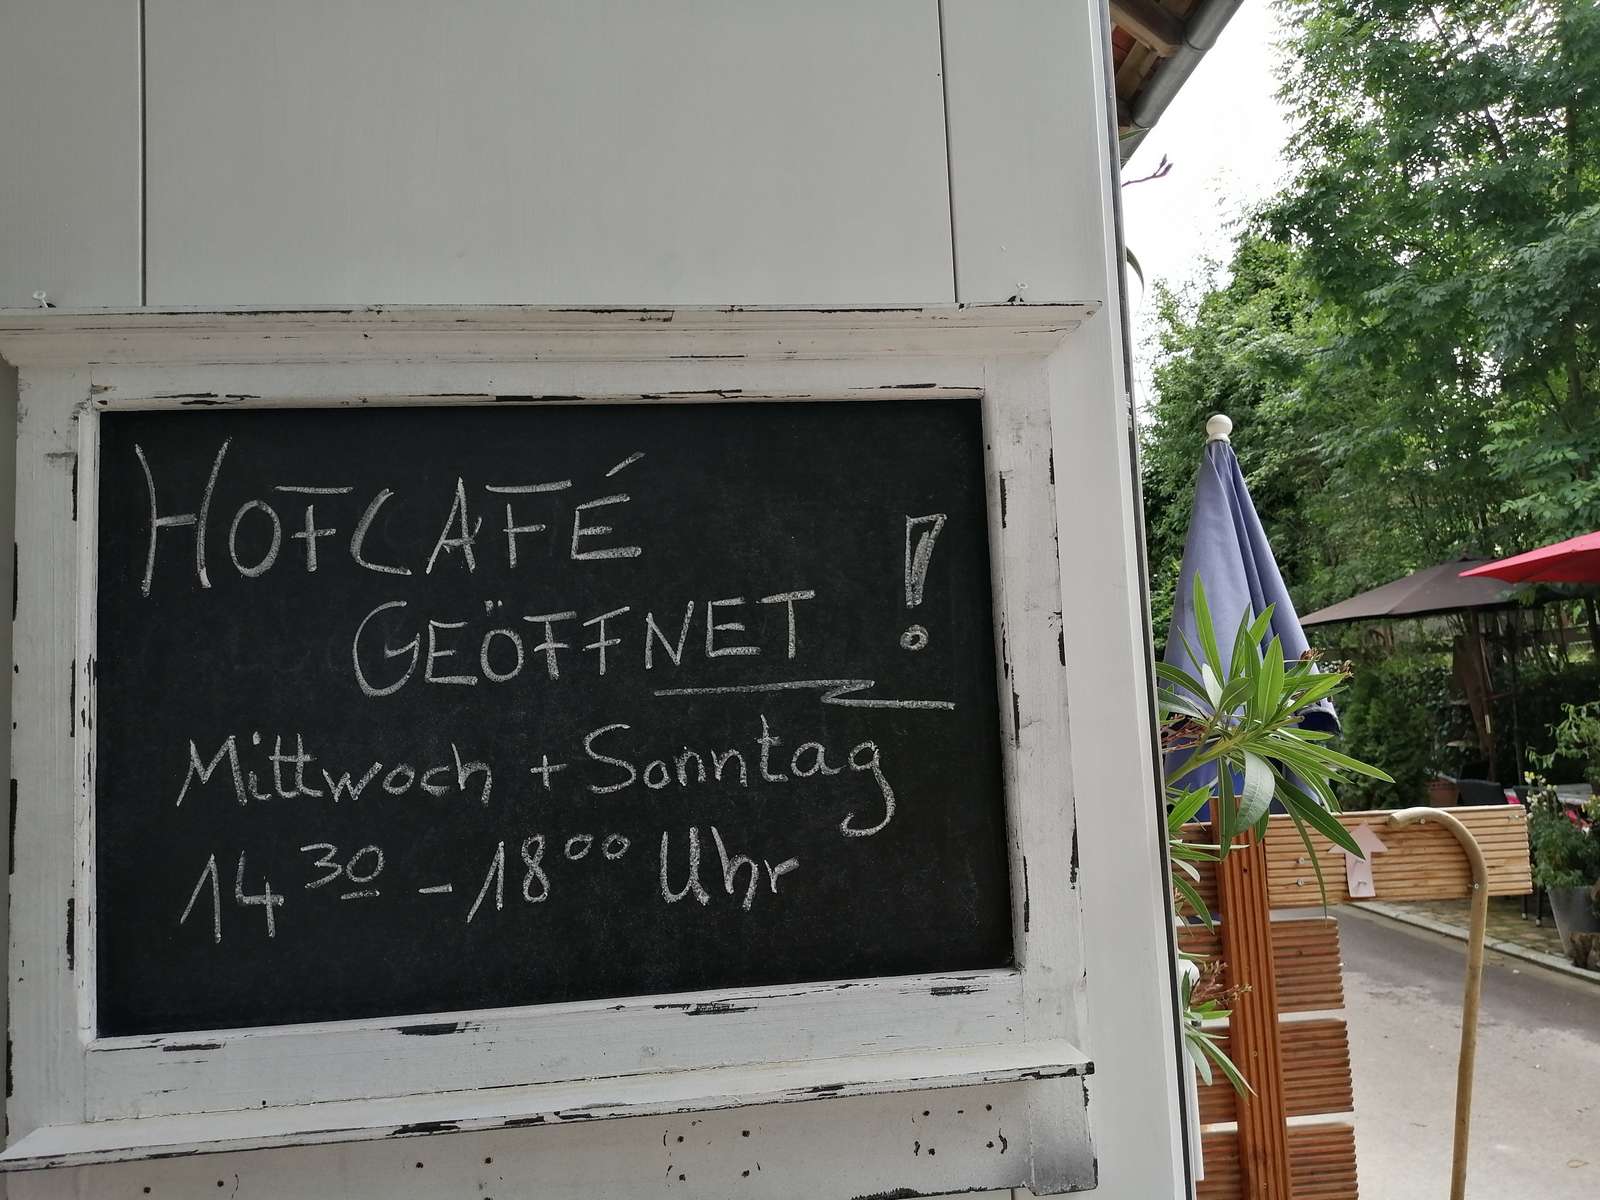 HOFCAFÉ
GEÖFFNET!
Mittwoch + Sonntag
14³⁰ - 18⁰⁰ Uhr